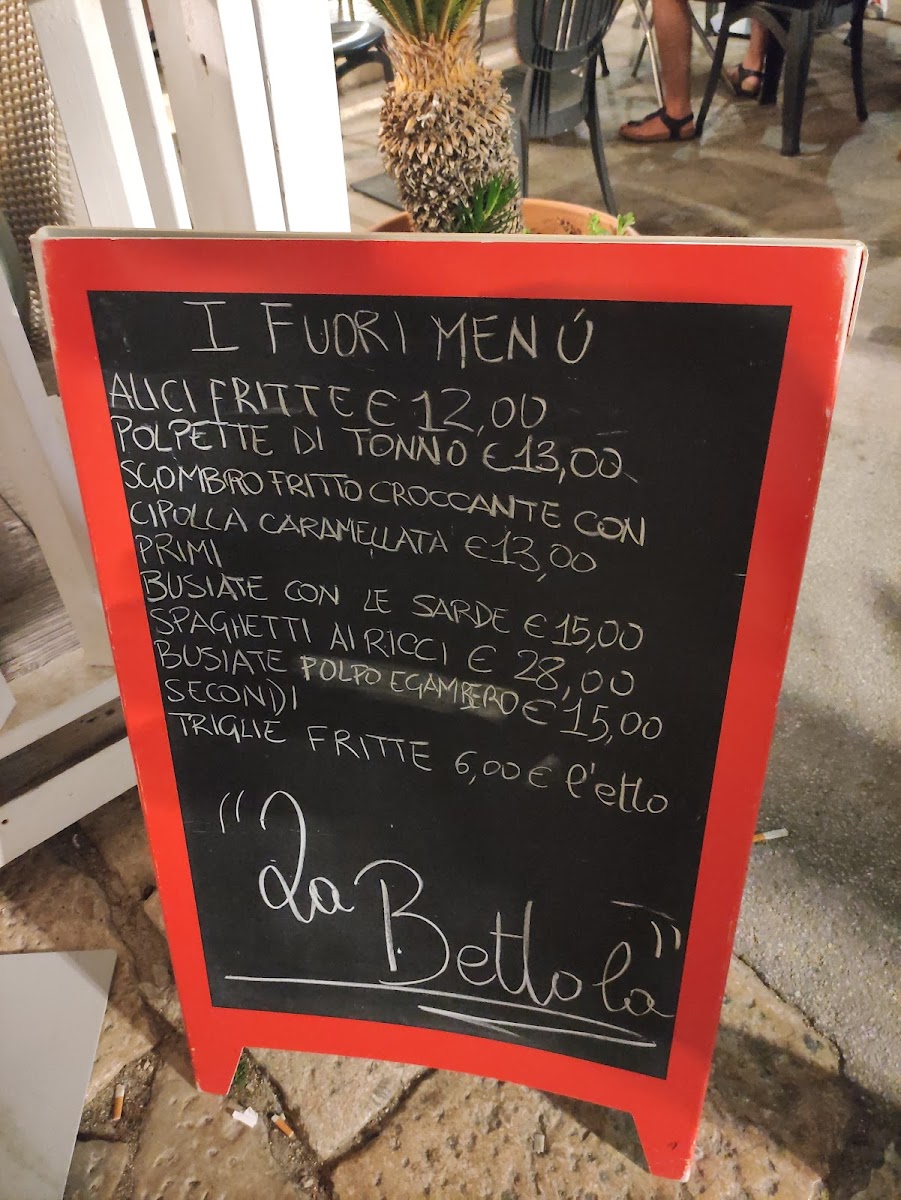 I FUORI MENÚ
ALICI FRITTE € 12,00
POLPETTE DI TONNO €13,00
SGOMBRO FRITTO CROCCANTE CON
CIPOLLA CARAMELLATA €13,00
PRIMI
BUSIATE CON LE SARDE €15,00
SPAGHETTI AI RICCI € 28,00
BUSIATE POLPO E GAMBERO €15,00
SECONDI
TRIGLIE FRITTE 6,00€ l'etto
"La Bettola"